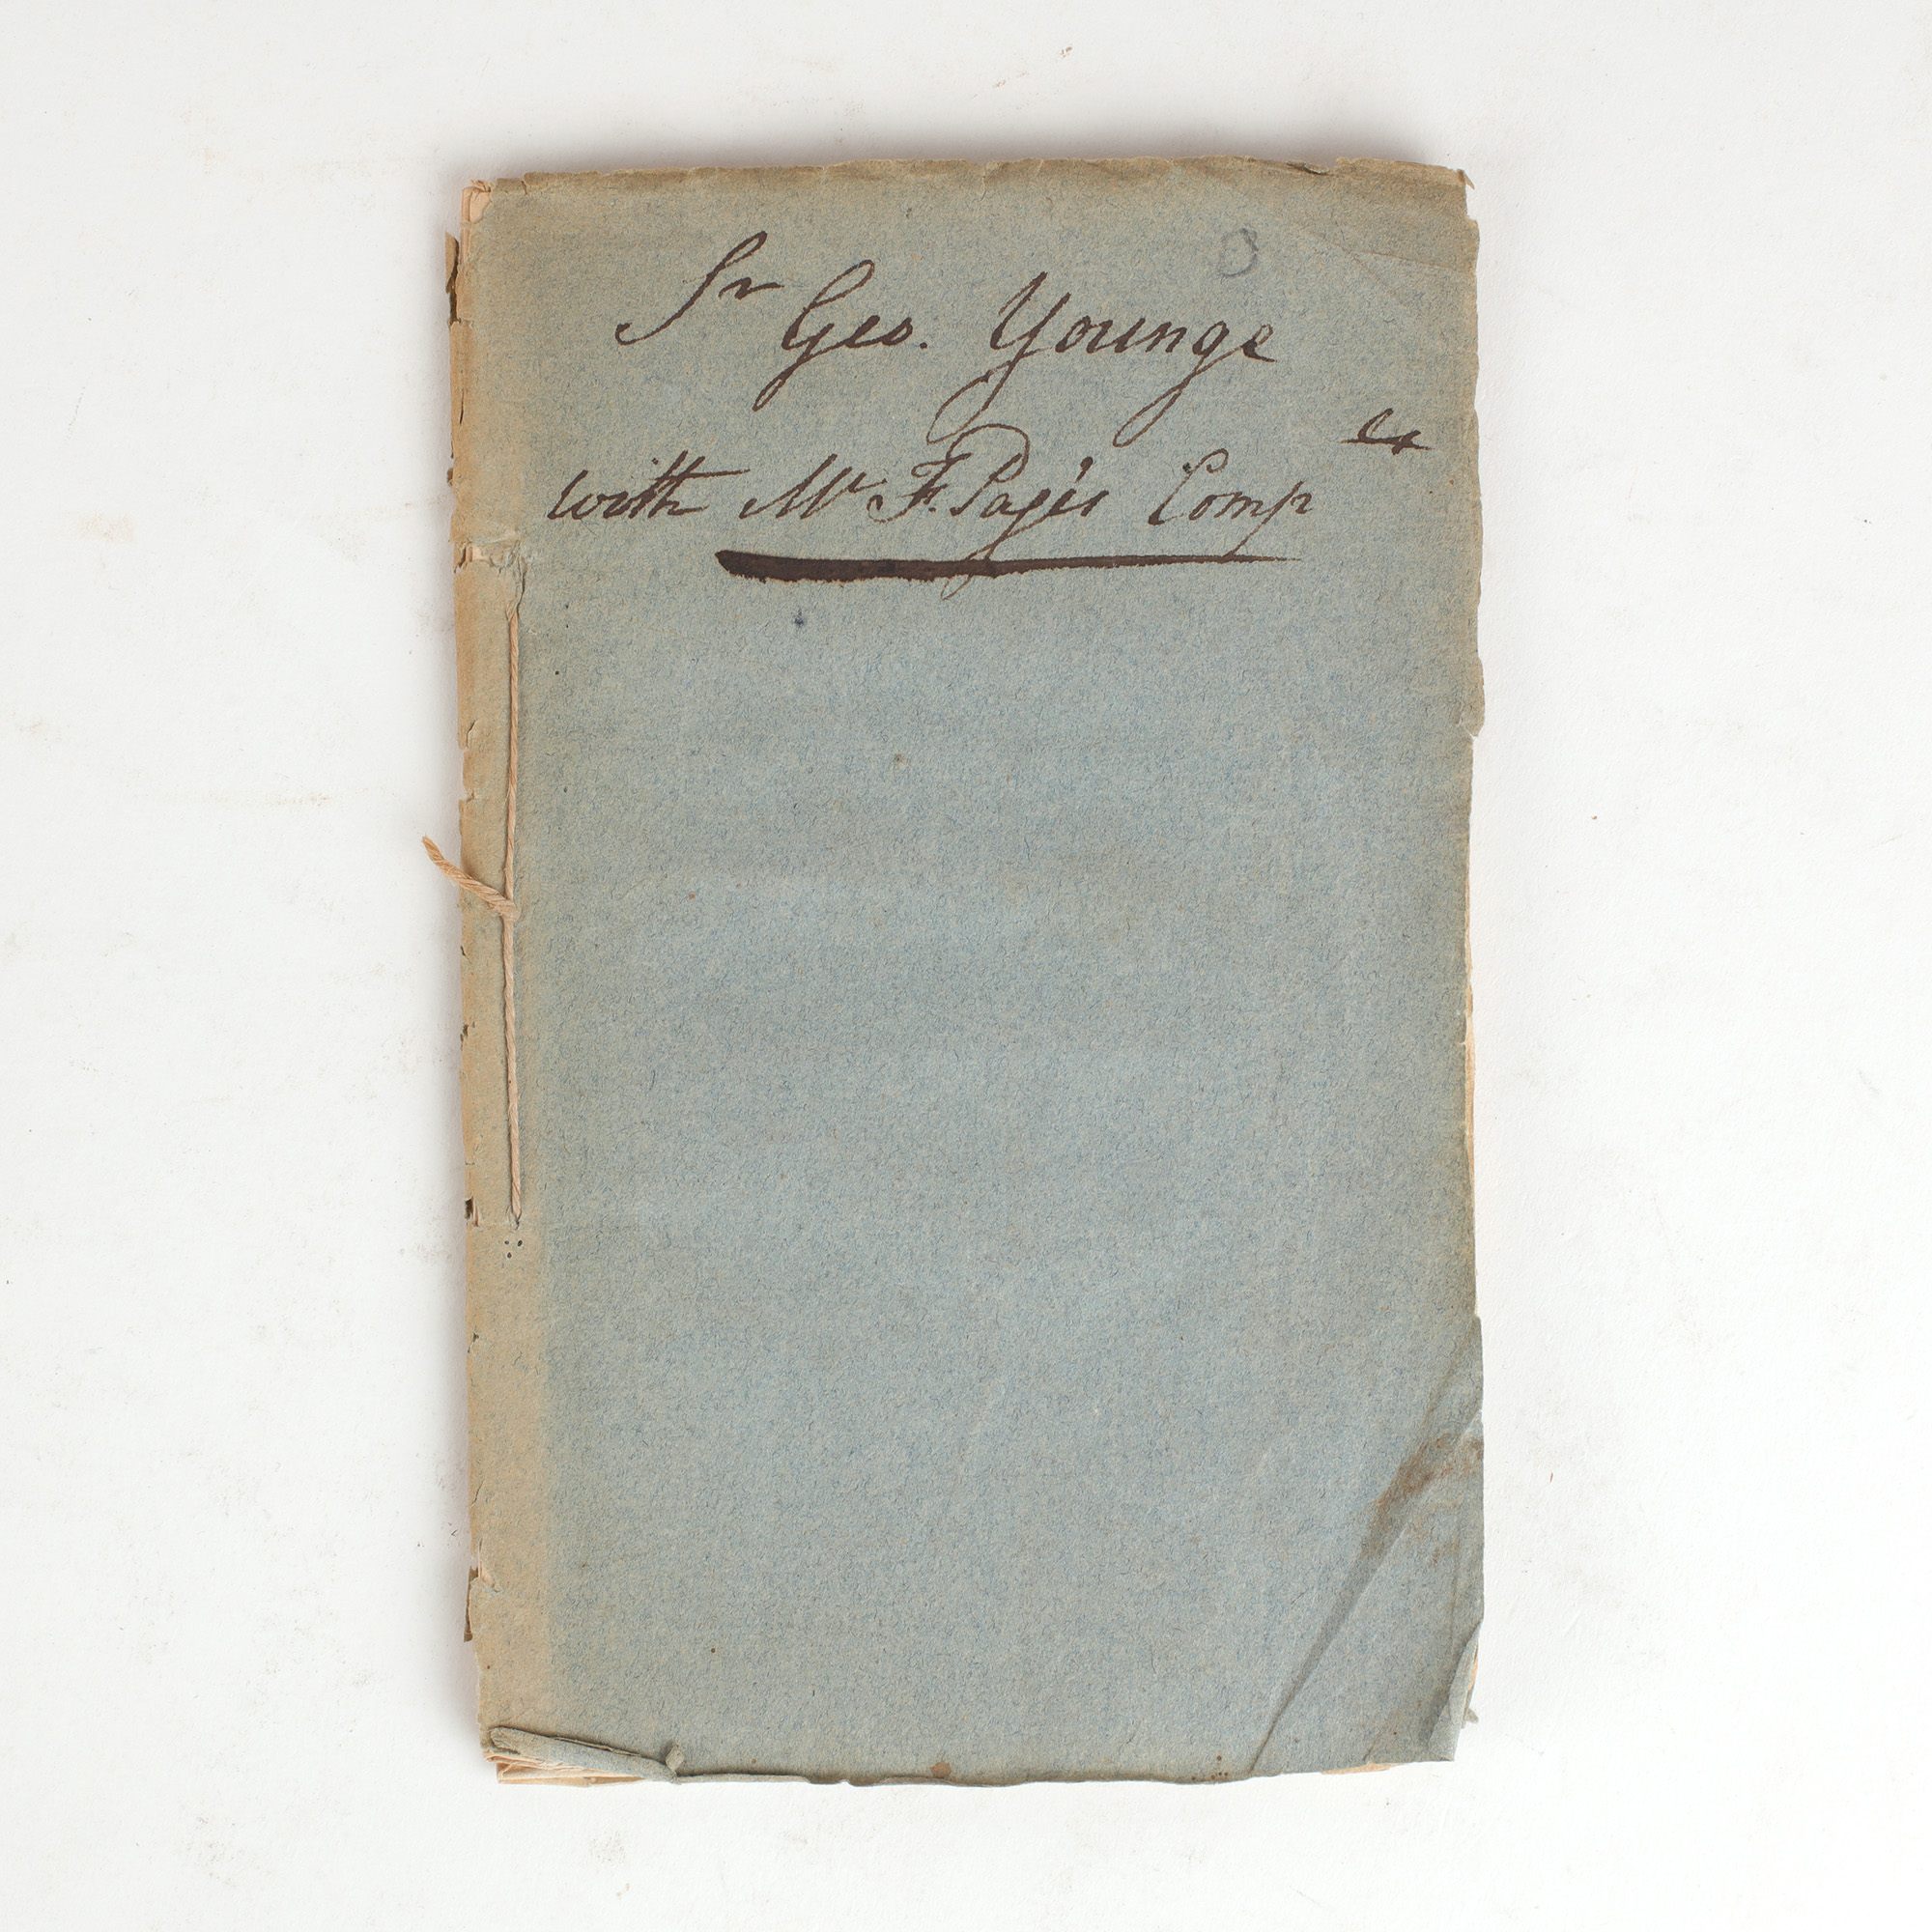 Sr Geo. Younge
with Mr F. Page's Compts